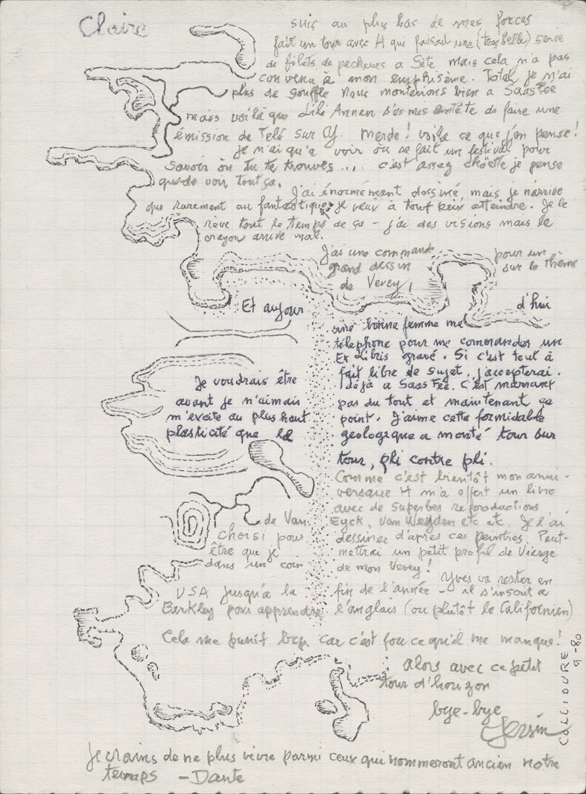 Claire
suis au plus bas de mes forces
fait un tour avec H qui faisait une (très belle) série
de filets de pêcheurs à Sète mais cela n'a pas
convenu à mon emphisème. Total je n'ai
plus de souffle Nous monterions bien à Saas Fee
mais voilà que dili Annen s'es mis entête de faire une
émission de Télé sur Cy. Merde! voilà ce que j'en pense!
Je n'ai qu'a voir où ce fait un festival pour
savoir où tu te trouves... c'est assez chouette je pense
que de voir tout ça.
J'ai énormément dessiné, mais je n'arrive
que rarement au fantastique que je veux à tout prix atteindre. Je le
rêve tout le temps de ça - j'ai des visions mais le
crayon arrive mal.
J'ai une commande pour un
grand dessin sur le thème
de Vevey,
Et aujour d'hui
une bonne femme me
téléphone pour me commander un
Ex libris gravé. Si c'est tout à
fait libre de sujet, j'accepterai.
Je voudrais être déjà à Saas Fee. C'est marrant
avant je n'aimais pas du tout et maintenant ça
m'excite au plus haut point. J'aime cette formidable
plasticité que la géologique a monté tour sur
tour, pli contre pli.
Comme c'est bientôt mon anni-
versaire H m'a offert un livre
avec de superbes reproductions
de Van Eyck, van Weyden etc etc. Je l'ai
choisi pour dessiner d'après ces peintres. Peut-
être que je mettrai un petit profil de Vierge
dans un coin de mon Vevey!
Yves va rester en
USA jusqu'à la fin de l'année - il s'inscrit à
Berkley pour apprendre l'anglais (ou plutôt le Californien)
Cela me punit bcp car c'est fou ce qu'il me manque!
alors avec ce petit
tour d'horizon
bye-bye
Gersin
COLLIOURE
9-80
Je crains de ne plus vivre parmi ceux qui nommeront ancien notre
temps - Dante